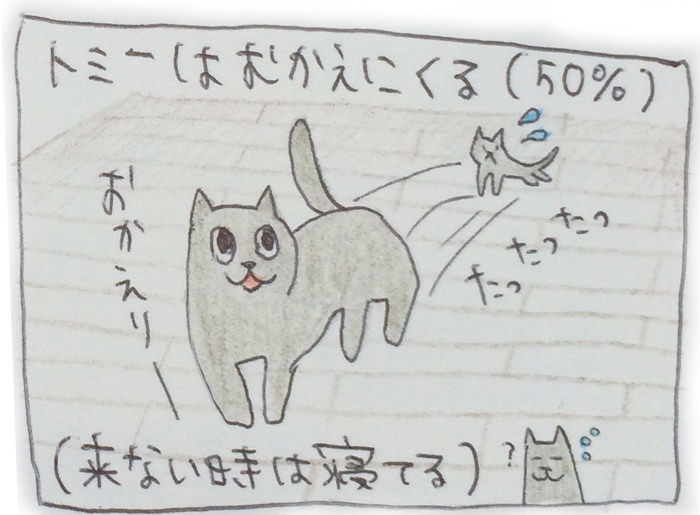 トミーはおむかえにくる(50%)
おかえり
たっ たっ たっ
(来ない時は寝てる)
?